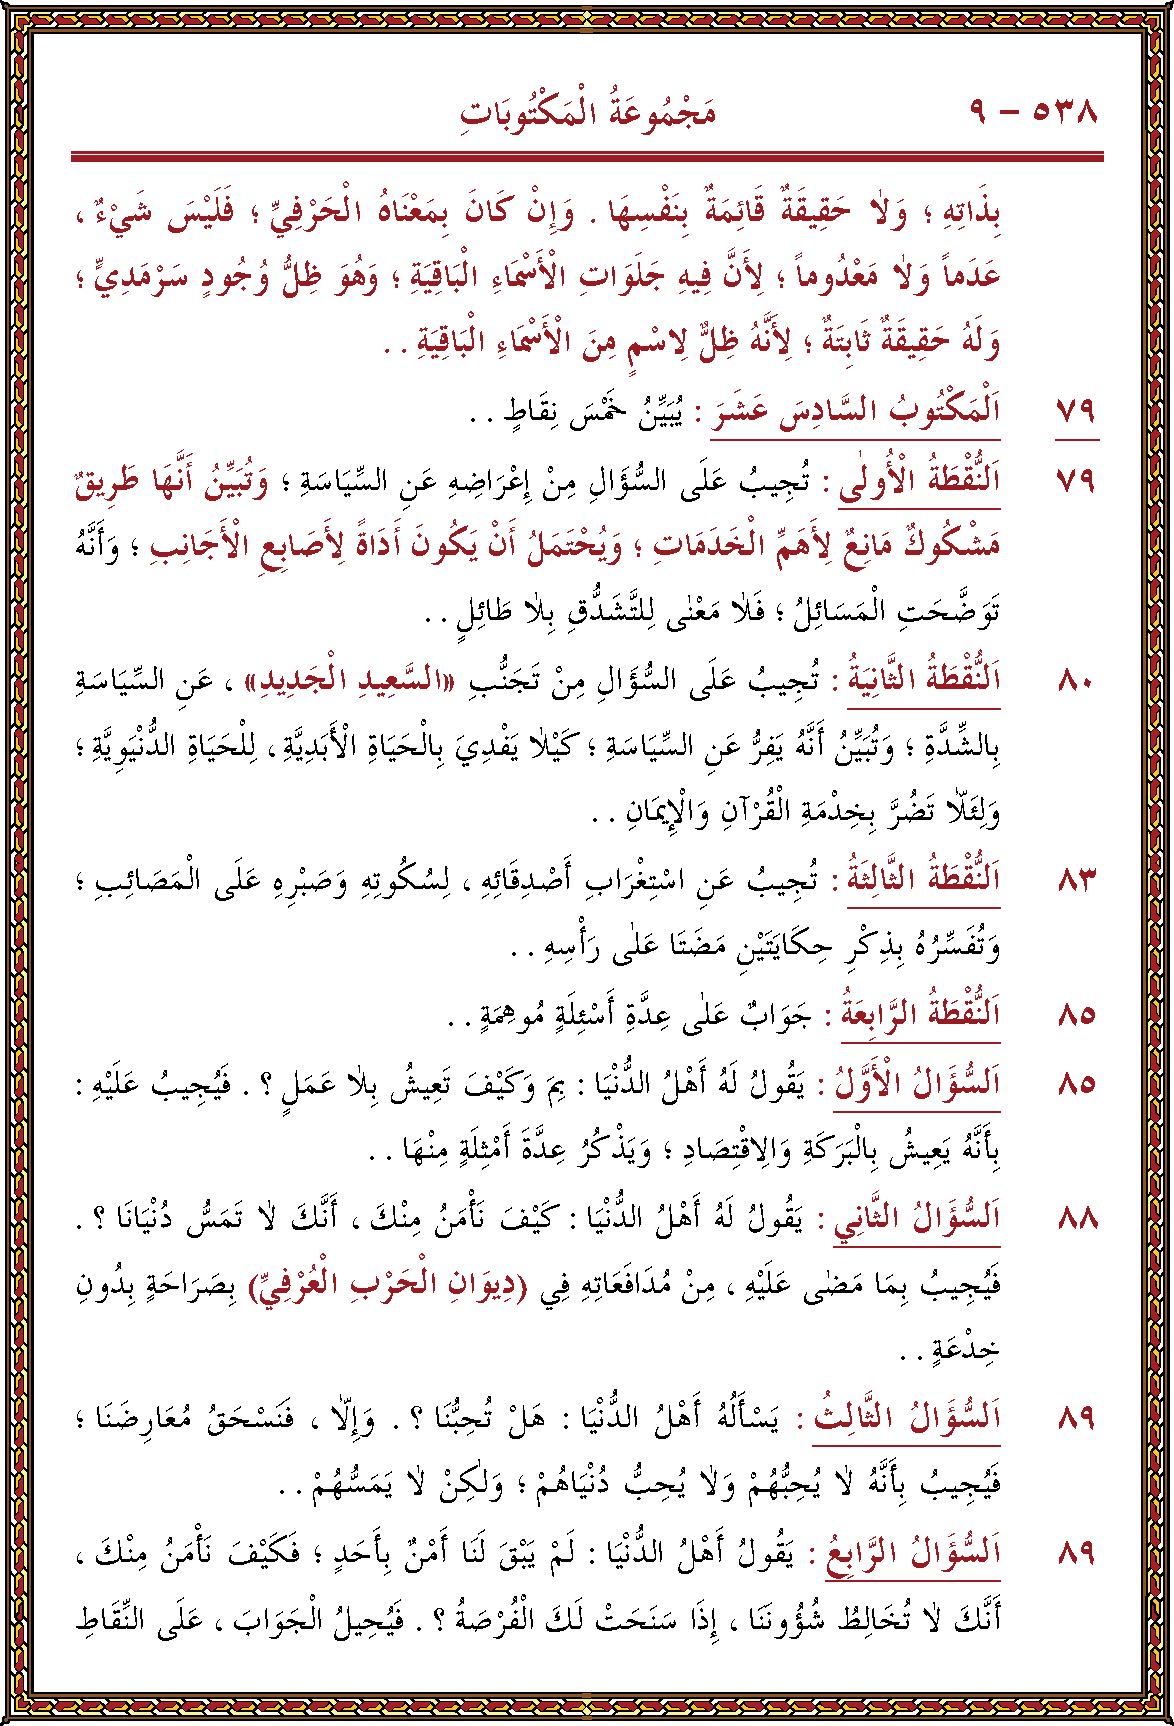 ٥٣٨ – ٩ مَجْمُوعَةُ الْمَكْتُوبَاتِ
بِذَاتِهِ ؛ وَلَا حَقِيقَةٌ قَائِمَةٌ بِنَفْسِهَا . وَإِنْ كَانَ بِمَعْنَاهُ الْحَرْفِيِّ ؛ فَلَيْسَ شَيْءٌ ،
عَدَماً وَلَا مَعْدُوماً ؛ لِأَنَّ فِيهِ جَلَوَاتِ الْأَسْمَاءِ الْبَاقِيَةِ ؛ وَهُوَ ظِلُّ وُجُودٍ سَرْمَدِيٍّ ؛
وَلَهُ حَقِيقَةٌ ثَابِتَةٌ ؛ لِأَنَّهُ ظِلٌّ لِاسْمٍ مِنَ الْأَسْمَاءِ الْبَاقِيَةِ . .
٧٩ اَلْمَكْتُوبُ السَّادِسَ عَشَرَ : يُبَيِّنُ خَمْسَ نِقَاطٍ . .
٧٩ اَلنُّقْطَةُ الْأُولَى : تُجِيبُ عَلَى السُّؤَالِ مِنْ إِعْرَاضِهِ عَنِ السِّيَاسَةِ ؛ وَتُبَيِّنُ أَنَّهَا طَرِيقٌ
مَشْكُوكٌ مَانِعٌ لِأَهَمِّ الْخَدَمَاتِ ؛ وَيُحْتَمَلُ أَنْ يَكُونَ أَدَاةً لِأَصَابِعِ الْأَجَانِبِ ؛ وَأَنَّهُ
تَوَضَّحَتِ الْمَسَائِلُ ؛ فَلَا مَعْنَى لِلتَّشَدُّقِ بِلَا طَائِلٍ . .
٨٠ اَلنُّقْطَةُ الثَّانِيَةُ : تُجِيبُ عَلَى السُّؤَالِ مِنْ تَجَنُّبِ «السَّعِيدِ الْجَدِيدِ» ، عَنِ السِّيَاسَةِ
بِالشِّدَّةِ ؛ وَتُبَيِّنُ أَنَّهُ يَفِرُّ عَنِ السِّيَاسَةِ ؛ كَيْلَا يَفْدِيَ بِالْحَيَاةِ الْأَبَدِيَّةِ ، لِلْحَيَاةِ الدُّنْيَوِيَّةِ ؛
وَلِئَلَّا تَضُرَّ بِخِدْمَةِ الْقُرْآنِ وَالْإِيمَانِ . .
٨٣ اَلنُّقْطَةُ الثَّالِثَةُ : تُجِيبُ عَنِ اسْتِغْرَابِ أَصْدِقَائِهِ ، لِسُكُوتِهِ وَصَبْرِهِ عَلَى الْمَصَائِبِ ؛
وَتُفَسِّرُهُ بِذِكْرِ حِكَايَتَيْنِ مَضَتَا عَلَى رَأْسِهِ . .
٨٥ اَلنُّقْطَةُ الرَّابِعَةُ : جَوَابٌ عَلَى عِدَّةِ أَسْئِلَةٍ مُوهِمَةٍ . .
٨٥ اَلسُّؤَالُ الْأَوَّلُ : يَقُولُ لَهُ أَهْلُ الدُّنْيَا : بِمَ وَكَيْفَ تَعِيشُ بِلَا عَمَلٍ ؟ . فَيُجِيبُ عَلَيْهِ :
بِأَنَّهُ يَعِيشُ بِالْبَرَكَةِ وَالِاقْتِصَادِ ؛ وَيَذْكُرُ عِدَّةَ أَمْثِلَةٍ مِنْهَا . .
٨٨ اَلسُّؤَالُ الثَّانِي : يَقُولُ لَهُ أَهْلُ الدُّنْيَا : كَيْفَ نَأْمَنُ مِنْكَ ، أَنَّكَ لَا تَمَسُّ دُنْيَانَا ؟ .
فَيُجِيبُ بِمَا مَضَى عَلَيْهِ ، مِنْ مُدَافَعَاتِهِ فِي (دِيوَانِ الْحَرْبِ الْعُرْفِيِّ) بِصَرَاحَةٍ بِدُونِ
خِدْعَةٍ . .
٨٩ اَلسُّؤَالُ الثَّالِثُ : يَسْأَلُهُ أَهْلُ الدُّنْيَا : هَلْ تُحِبُّنَا ؟ . وَإِلَّا ، فَنَسْحَقُ مُعَارِضَنَا ؛
فَيُجِيبُ بِأَنَّهُ لَا يُحِبُّهُمْ وَلَا يُحِبُّ دُنْيَاهُمْ ؛ وَلَكِنْ لَا يَمَسُّهُمْ . .
٨٩ اَلسُّؤَالُ الرَّابِعُ : يَقُولُ أَهْلُ الدُّنْيَا : لَمْ يَبْقَ لَنَا أَمْنٌ بِأَحَدٍ ؛ فَكَيْفَ نَأْمَنُ مِنْكَ ،
أَنَّكَ لَا تُخَالِطُ شُؤُونَنَا ، إِذَا سَنَحَتْ لَكَ الْفُرْصَةُ ؟ . فَيُحِيلُ الْجَوَابَ ، عَلَى النِّقَاطِ